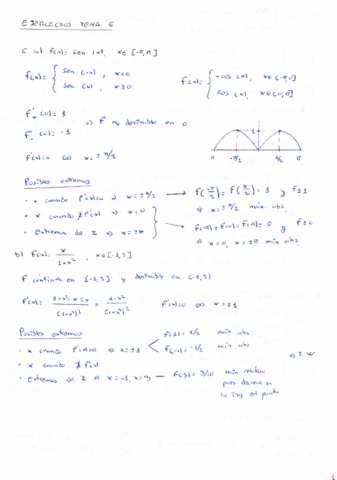 EJERCICIOS TEMA 6
6 a) f(x) = sen |x|, x ∈ [-π, π]
f(x) = { sen (-x), x<0
sen (x), x≥0
f'(x) = { -cos (x), x ∈ (-π, 0)
cos (x), x ∈ (0, π]
f'₊(0) = 1
f'₋(0) = -1
⇒ f no derivable en 0
f'(x)=0 ⇔ x = ± π/2
π -π/2 π/2 π
1
Posibles extremos
· x cuando f'(x)=0 ⇒ x = ± π/2 → f(-π/2) = f(π/2) = 1 y f≤1
⇒ x = ± π/2 máx. abs.
· x cuando ∄ f'(x) ⇒ x = 0
· Extremos de I ⇒ x = ±π
f(-π) = f(0) = f(π) = 0 y f≥0
⇒ x = 0, x = ±π mín abs
b) f(x) = x/(1+x²), x ∈ [-1, 3]
f continua en [-1, 3] y derivable en (-1, 3)
f'(x) = (1+x² - x·2x)/(1+x²)² = (1-x²)/(1+x²)² f'(x)=0 ⇔ x = ±1
Posibles extremos
· x cuando f'(x)=0 ⇒ x = ±1
f(1) = 1/2 máx abs
f(-1) = -1/2 mín abs
· x cuando ∄ f'(x)
· Extremos de I ⇒ x = -1, x = 3 → f(3) = 3/10 mín relativo
⇒ T. W
pues decrece a
la izq. del punto
1